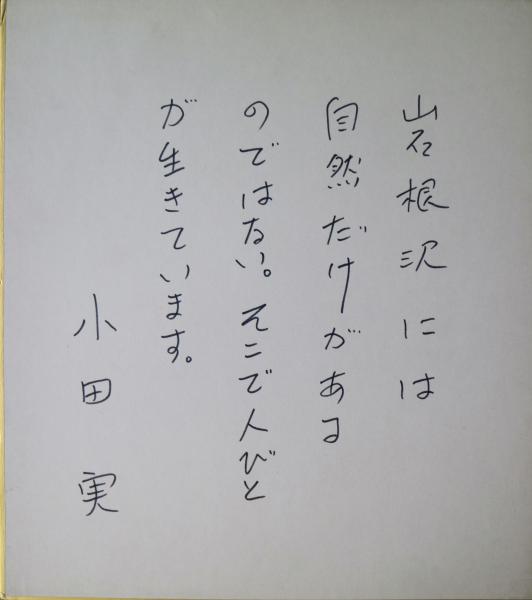 岩根沢には
自然だけがある
のではない。そこで人びと
が生きています。
小田 実